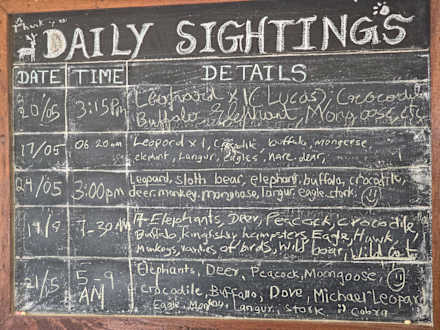 Thank you
DAILY SIGHTINGS
DATE TIME DETAILS
20/05 3:15pm Leopard x 1 (Lucas), Crocodile
Buffalo, Elephant, Mongoose, etc
17/05 06 20am Leopord x 1, Crocodile, buffalo, mongerse,
elephant, Langur, eagles, hare, dear,
24/05 3:00pm Leopard, sloth bear, elephant, buffalo, crocodile,
deer, monkey, mongoose, langur, eagle, stork
7-30AM 17-Elephants, Deer, Peacock, crocodile
Buffalo Kingfisher Eagle, Hawk
Monkeys, varities of birds, Wild boar, Wild cat
21/5 5-9 AM Elephants, Deer, Peacock, Moongoose,
crocodile, Buffalo, Dove, Michael Leopard
Eagle, Monkey, Langur, stosk Cobra